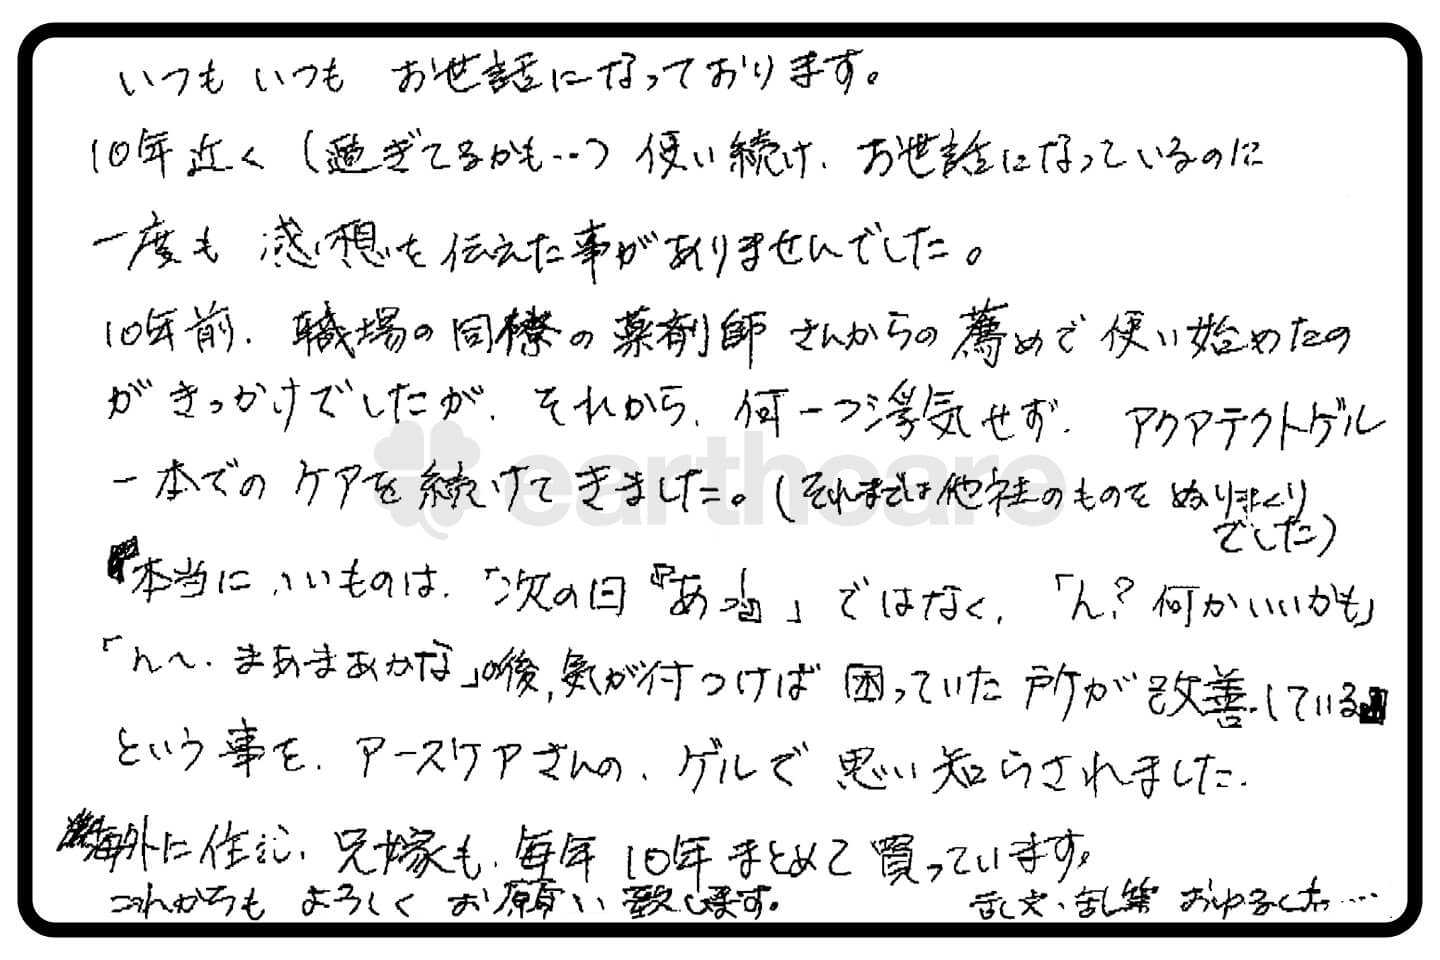 いつもいつも お世話になっております。
10年近く(過ぎてるかも…)使い続け、お世話になっているのに
一度も 感想を伝えた事がありませんでした。
10年前、職場の同僚の薬剤師さんからの薦めで使い始めたの
がきっかけでしたが、それから、何一つ浮気せず、アクアテクトゲル
一本でのケアを続けてきました。(それまでは他社のものをぬりまくり
でした)
earthcare
『本当にいいものは、「次の日『あっ!』」ではなく、「ん?何かいいかも」
「ん〜、まあまあかな」の後、気が付つけば困っていた所が改善している』
という事を、アースケアさんの、ゲルで思い知らされました。
海外に住む、兄嫁も、毎年10年まとめて買っています。
これからもよろしくお願い致します。
乱文・乱筆 おゆるし